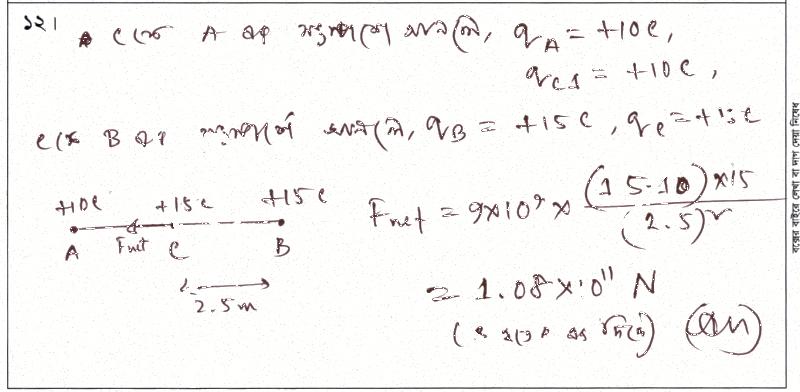 ১২। C কে A এর সংস্পর্শে আনলে, q_A = +10C,
q_C1 = +10C,
C কে B এর সংস্পর্শে আনলে, q_B = +15C, q_C = +15C
+10C +15C +15C
A Fnet C B
2.5m
F_net = 9×10⁹ × (15-10)×15 / (2.5)²
= 1.08×10¹¹ N
(C হতে A এর দিকে) (Ans)
বক্সের বাইরে লেখা বা দাগ দেয়া নিষেধ